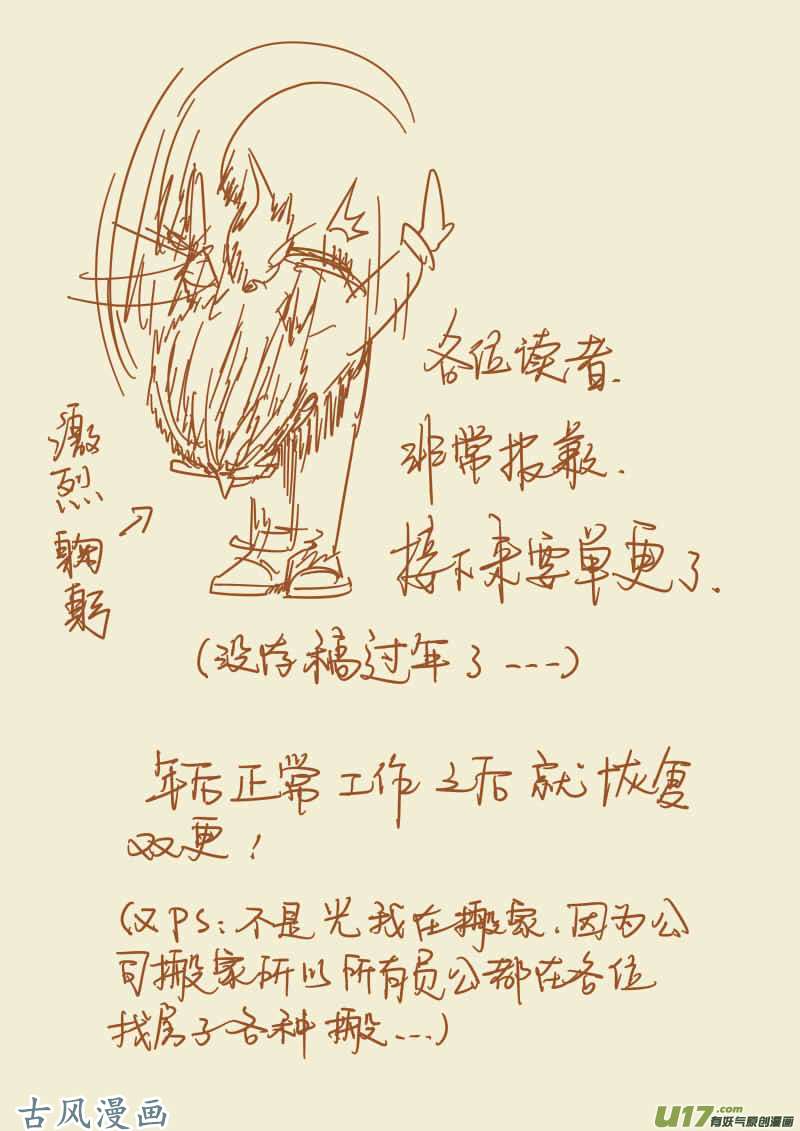 各位读者.
非常报歉.
接下来要单更了.
激烈鞠躬
(没存稿过年了----)
年后正常工作之后就恢复
双更!
(又PS:不是光我在搬家.因为公
司搬家所以所有员公都在各位
找房子各种搬---)
古风漫画
U17.com
有妖气原创漫画